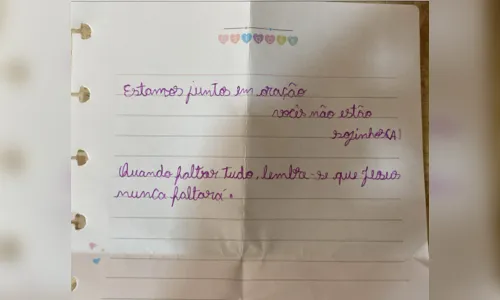 Estamos juntos em oração
vocês não estão
sozinhos(A)!
Quando faltar tudo, lembra-se que Jesus
nunca faltará.